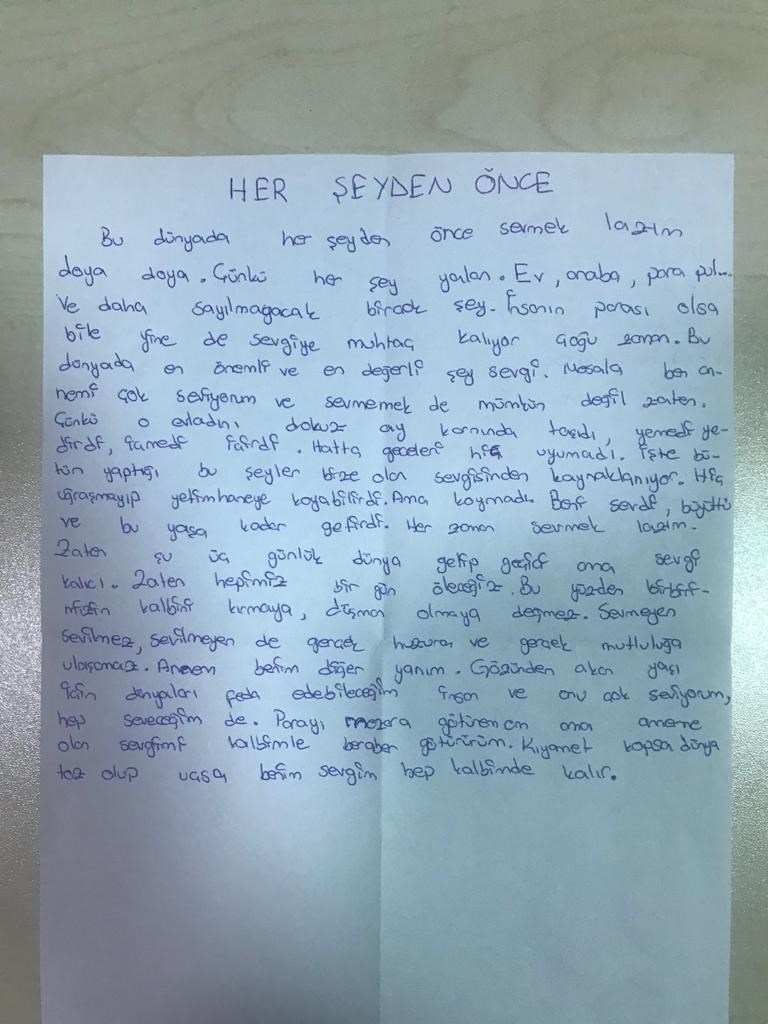 HER ŞEYDEN ÖNCE
Bu dünyada her şeyden önce sevmek lazım
doya doya. Çünkü her şey yalan. Ev, araba, para pul...
Ve daha sayılmayacak birçok şey. İnsanın parası olsa
bile yine de sevgiye muhtaç kalıyor çoğu zaman. Bu
dünyada en önemli ve en değerli şey sevgi. Mesala ben an-
nemi çok seviyorum ve sevmemek de mümkün değil zaten.
Çünkü o evladını dokuz ay karnında taşıdı, yemedi ye-
dirdi, içmedi içirdi. Hatta geceleri hiç uyumadı. İşte bü-
tün yaptığı bu şeyler bize olan sevgisinden kaynaklanıyor. Hiç
uğraşmayıp yetimhaneye koyabilirdi. Ama koymadı. Beni sevdi, büyüttü
ve bu yaşa kadar getirdi. Her zaman sevmek lazım.
Zaten şu üç günlük dünya gelip geçici ama sevgi
kalıcı. Zaten hepimiz bir gün öleceğiz. Bu yüzden birbiri-
mizin kalbini kırmaya, düşman olmaya değmez. Sevmeyen
sevilmez, sevilmeyen de gerçek huzura ve gerçek mutluluğa
ulaşamaz. Annem benim diğer yanım. Gözünden akan yaşı
için dünyaları feda edebileceğim insan ve onu çok seviyorum,
hep seveceğim de. Parayı mezara götüremem ama anneme
olan sevgimi kalbimle beraber götürürüm. Kıyamet kopsa dünya
toz olup uçsa benim sevgim hep kalbimde kalır.